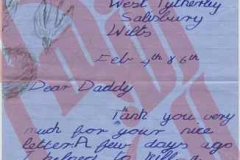 West Tytherley
Salisbury
Wilts
Feb 4th & 6th
Dear Daddy
Tank you very
much for your nice
letter. A few days ago
I helped to